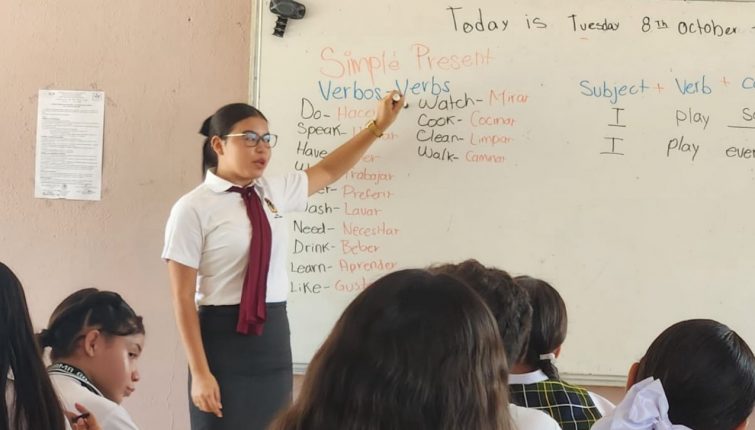 Today is Tuesday 8th October
Simple Present
Verbos-Verbs
Do-
Speak-
Have
Trabajar
Preferir
Wash- Lavar
Need- Necesitar
Drink- Beber
Learn- Aprender
Like-
Watch- Mirar
Cook- Cocinar
Clean- Limpiar
Walk- Caminar
Subject + Verb +
I play
I play